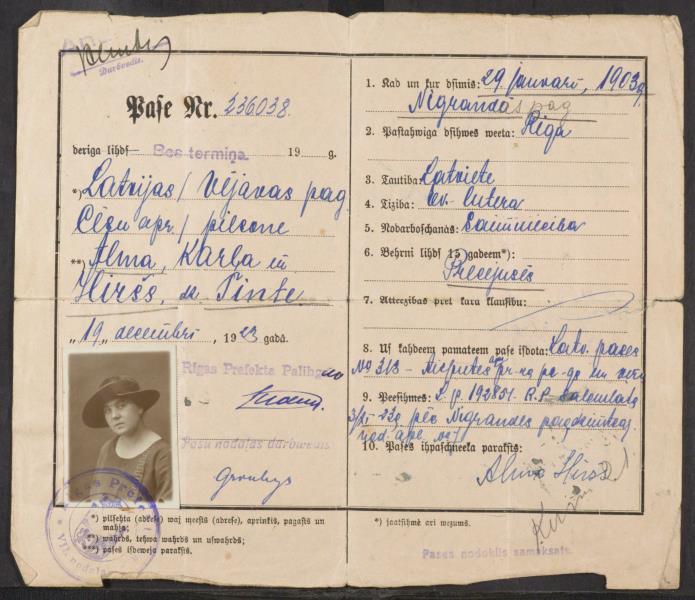 Darbvedis.
Pase Nr. 236038.
deriga lihds Bes termiņa. 19 g.
*) Latvijas / Vējavas pag.
Cēsu apr. / pilsone
**) Alma, Karļa m.
Hiršs, dz. Tinte
„19„ decembrī , 1923 gadā.
Rīgas Prefekta Palihgs
Pasu nodaļas darbvedis
*) pilsehta (adrese) waj meests (adrese), aprinkis, pagasts un mahja;
**) wahrds, tehwa wahrds un uswahrds;
***) pases isdeweja paraksts.
1. Kad un kur dsimis: 29. janvarī, 1903 g.
Nīgrandās pag
2. Pastahwiga dsihwes weeta: Rīga
3. Tautiba: Latviete
4. Tiziba: ev. lutera
5. Nodarboschanās: Saimniecība
6. Behrni lihds 15 gadeem*):
Precejusēs
7. Atteezibas pret kara klausibu:
8. Us kahdeem pamateem pase isdota: Latv. pases
No 313 - Aisputes apr-
9. Peesihmes:
10. Pases ihpaschneeka paraksts:
Alma Hirss
*) jaatsihmē ari wezums.
Pases nodoklis samaksats.